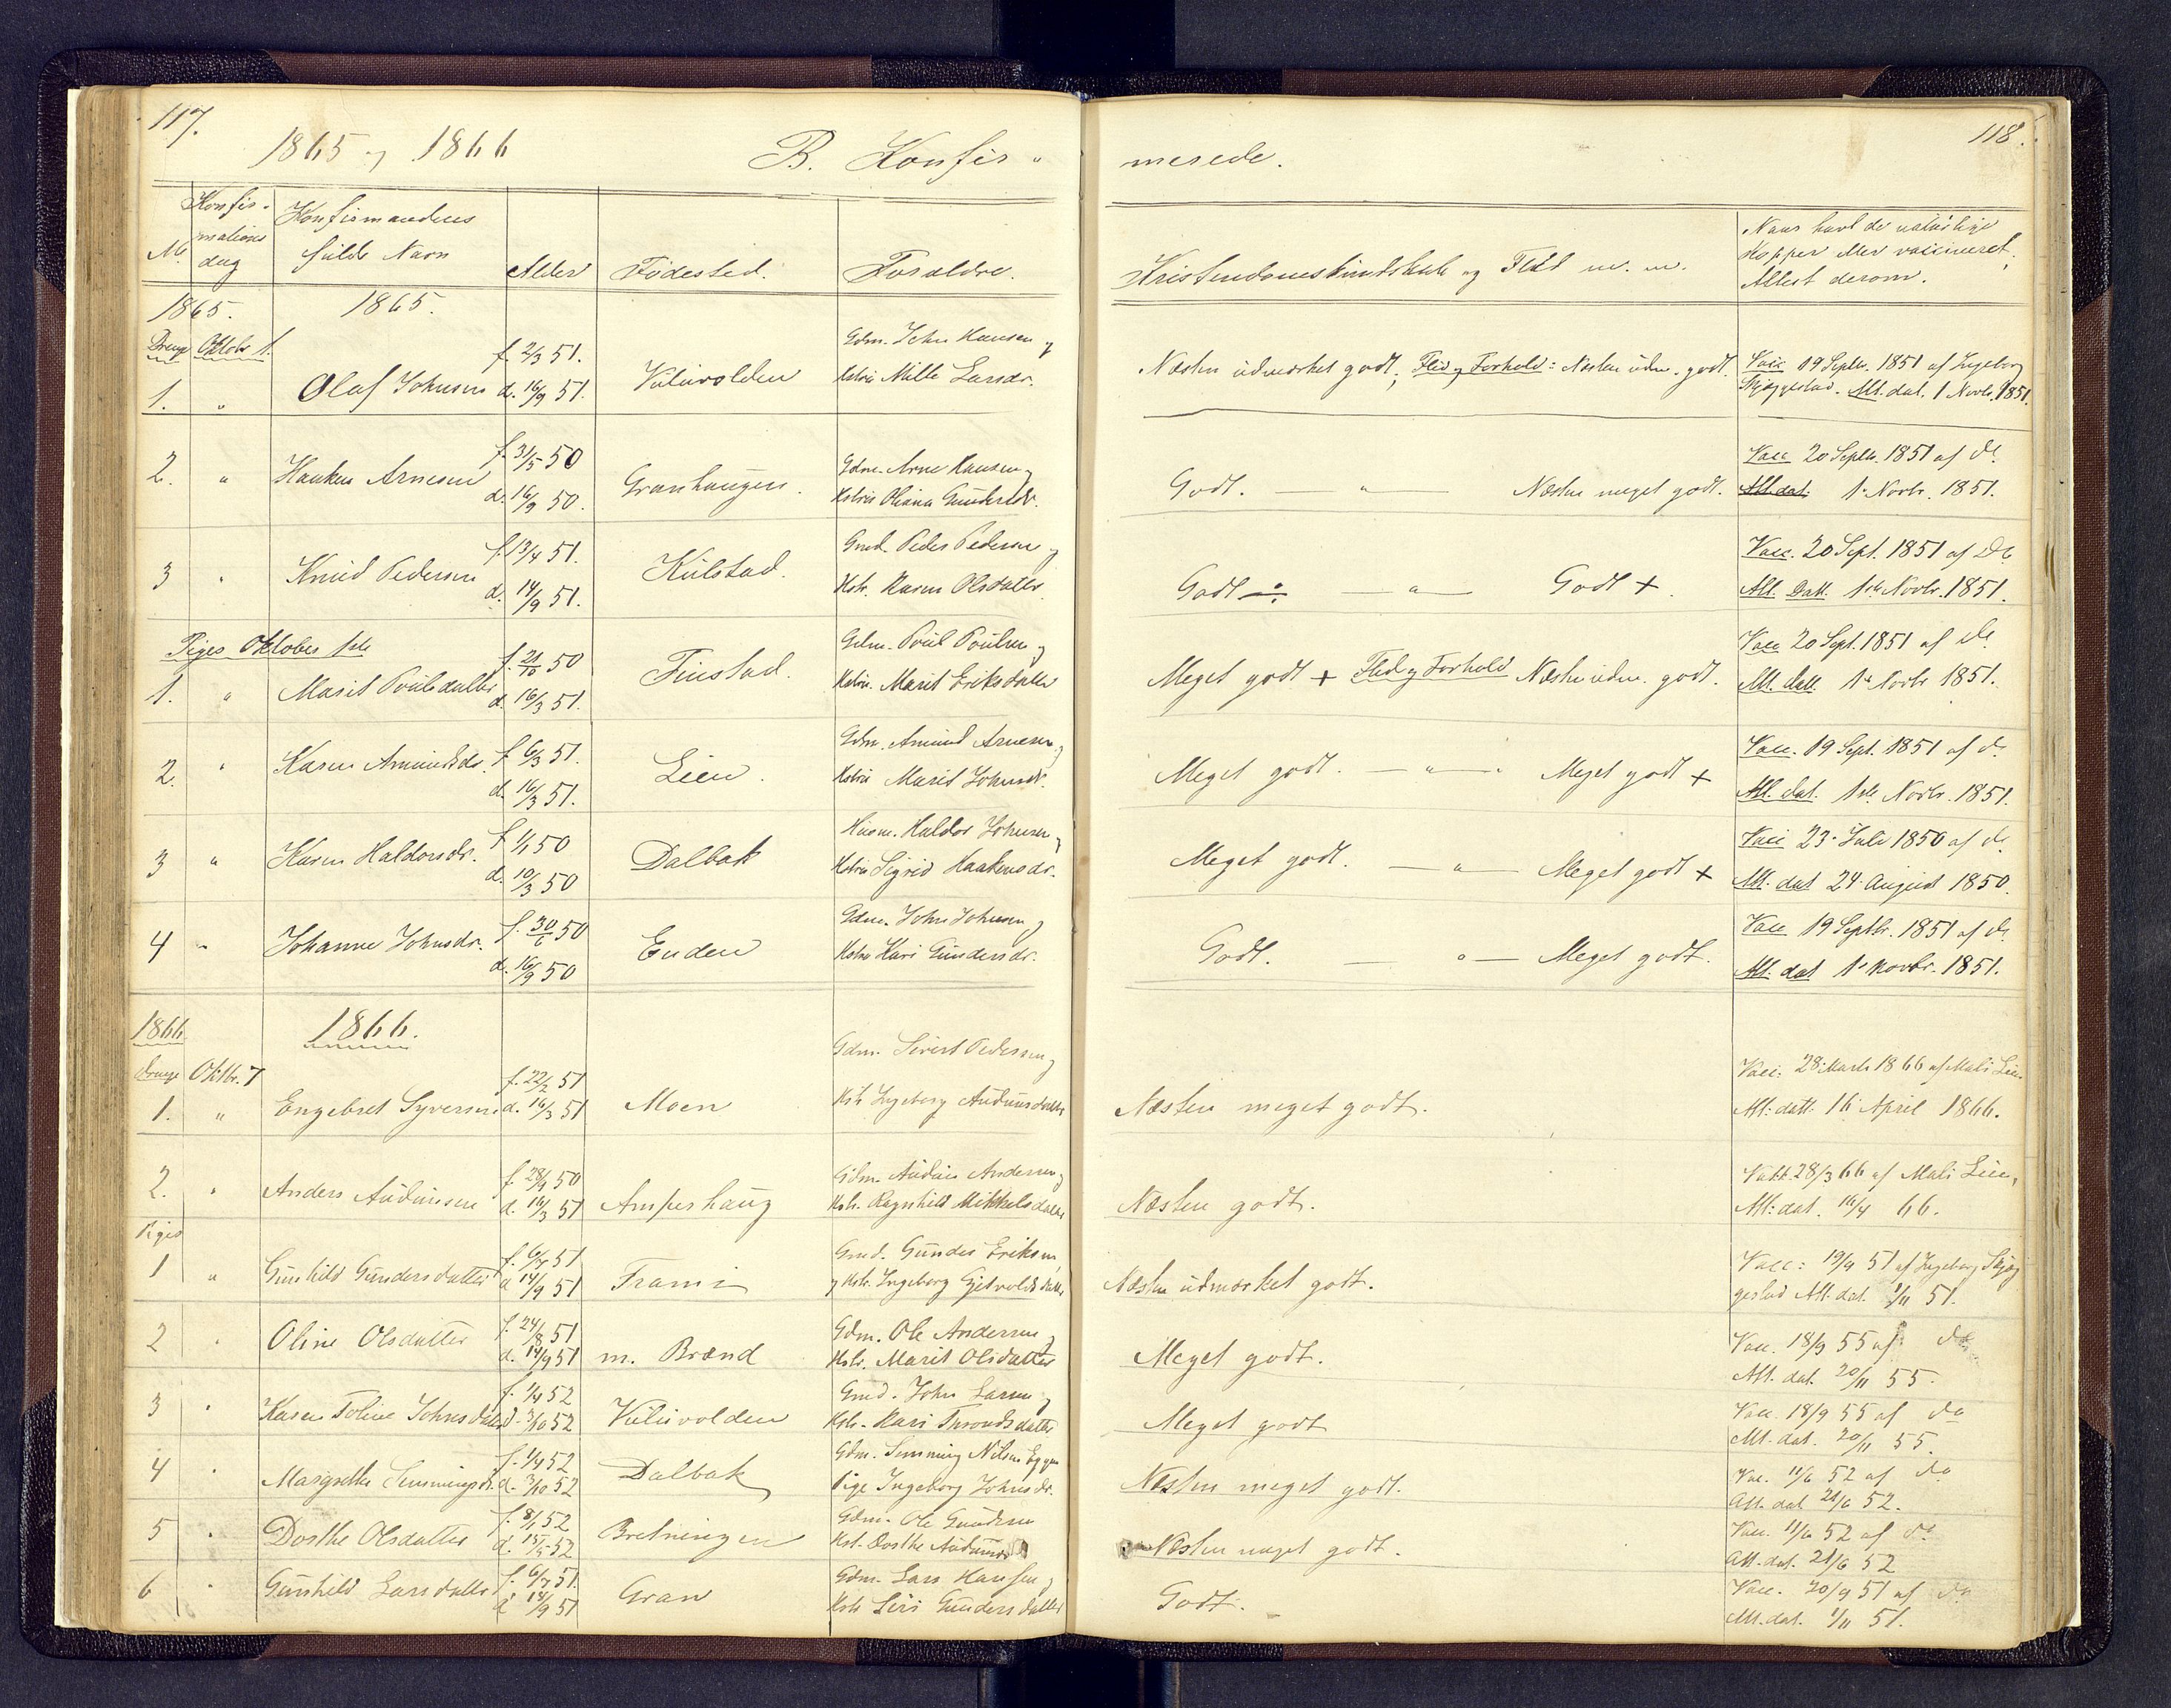 117.
1865 og 1866
B. Konfir-
merede.
118.
No.
Konfir-
mations
dag
Konfirmandens
fulde Navn
Alder
Fødested.
Forældre.
Kristendomskundskab og Flid m. m.
Naar havt de naturlige
Kopper eller vaccineret,
Attest derom.
1865.
1865.
Drenge Oktobr 1.
1. " Olaf Johnsen f. 2/3 51. d. 16/9 51. Vuluvolden
Gdm. John Hansen og
Kstru Mille Larsdr.
Næsten udmærket godt; Flid og Forhold: Næsten udm. godt.
Vacc 19 Septbr. 1851 af Ingeborg
Skjæggestad. Att. dat. 1 Novbr. 1851.
2. " Haaken Arnesen f. 31/5 50 d. 16/9 50. Granhaugen.
Gdm. Arne Hansen og
Kstru Oliana Gundersdr.
Godt. — " — Næsten meget godt.
Vacc 20 Septbr. 1851 af do
Att. dat. 1. Novbr. 1851.
3 " Knud Pedersen f. 13/4 51. d. 14/9 51. Kulstad.
Gmd. Peder Pedersen og
Kstr. Karen Olsdatter
Godt ÷ — " — Godt +.
Vacc. 20 Sept. 1851 af Do
Att. Datt. 1ste Novbr. 1851.
Piger Oktober 1ste
1. " Marit Poulsdatter f. 21/10 50 d. 16/3 51. Finstad.
Gdm. Poul Poulsen og
Kstru. Marit Eriksdatter
Meget godt + Flid og Forhold Næsten udm. godt.
Vacc 20 Sept. 1851 af do
Att. datt. 1ste Novbr 1851.
2. " Karen Amundsdr. f. 6/3 51. d. 16/3 51. Lien.
Gdm. Amund Arnesen og
Kstru Marit Johnsdr.
Meget godt. — " — " Meget godt +
Vacc. 19 Sept. 1851 af do
Att. dat. 1ste Novbr. 1851.
3 " Karen Haldorsdr. f. 1/1 50 d. 10/3 50 Dalbak
Husm. Haldor Johnsen og
Kstru Sigrid Haakensdr.
Meget godt. — " — Meget godt +
Vacc 23. Juli 1850 af do
Att. dat 24. August 1850.
4 " Johanne Johnsdr. f. 30/6 50 d. 16/9 50 Enden
Gdm. John Johnsen og
Kstru Kari Gundersdr.
Godt. — " — Meget godt.
Vacc 19 Septbr. 1851 af do
Att. dat 1. Novbr. 1851.
1866.
1866.
Drenge Oktbr. 7
1. " Engebret Syversen f. 22/2 51 d. 16/3 51 Moen
Gdm. Sivert Pedersen og
Kstr Ingeborg Audunsdatter
Næsten meget godt.
Vacc: 28. Marts 1866 af Mali Lien
Att: datt: 16 April 1866.
2. " Anders Audunsen d. 16/3 51 Ampershaug
Gdm. Audun Andersen og
Kstr. Ragnhild Mikkelsdatter
Næsten godt.
Vakt 28/3 66 af Mali Lien,
Att: dat. 16/4 66.
Piger
1 " Gunhild Gundersdatter d 14/9 51 Trami
Gmd. Gunder Eriksen
og Kstr. Ingeborg
Næsten udmærket godt.
Vacc: 19/9 51 af Ingeborg Skjæg
gestad Att. dat. 1/11 51.
2 " Oline Olsdatter f. 24/8 51 d. 14/9 51 m. Brænd
Gdm. Ole Andersen og
Kstr. Marit Olsdatter
Meget godt.
Vacc. 18/9 55 af do
Att. dat. 20/11 55.
3 " Karen Toline Johnsdatter f. 1/4 52 d. 3/10 52 Vuluvolden
Gmd. John Larsen og
Kstr. Kari Throndsdatter
Meget godt
Vacc. 18/9 55 af do
Att. dat. 20/11 55.
4 " Margrethe Simmingsdr. f. 1/9 52 d. 3/10 52 Dalbak
Gdm. Simming Nilsen Eggen
Pige Ingeborg Johnsdr.
Næsten meget godt.
Vac. 11/6 52 af do
Att. dat 21/6 52.
5 " Dorthe Olsdatter f. 8/1 52 Bretningen
Gdm. Ole Gundersen
Kst. Dorthe Audunsdr
Næsten meget godt.
Vacc. 11/6 52 af do
Att. dat. 21/6 52
6 " Gunhild Larsdatter f. 6/7 51. d 14/9 51 Gran
Gdm. Lars Hansen og
Kstr Siri Gundersdatter
Godt.
Vacc. 20/9 51 af do
Att. dat. 1/11 51.